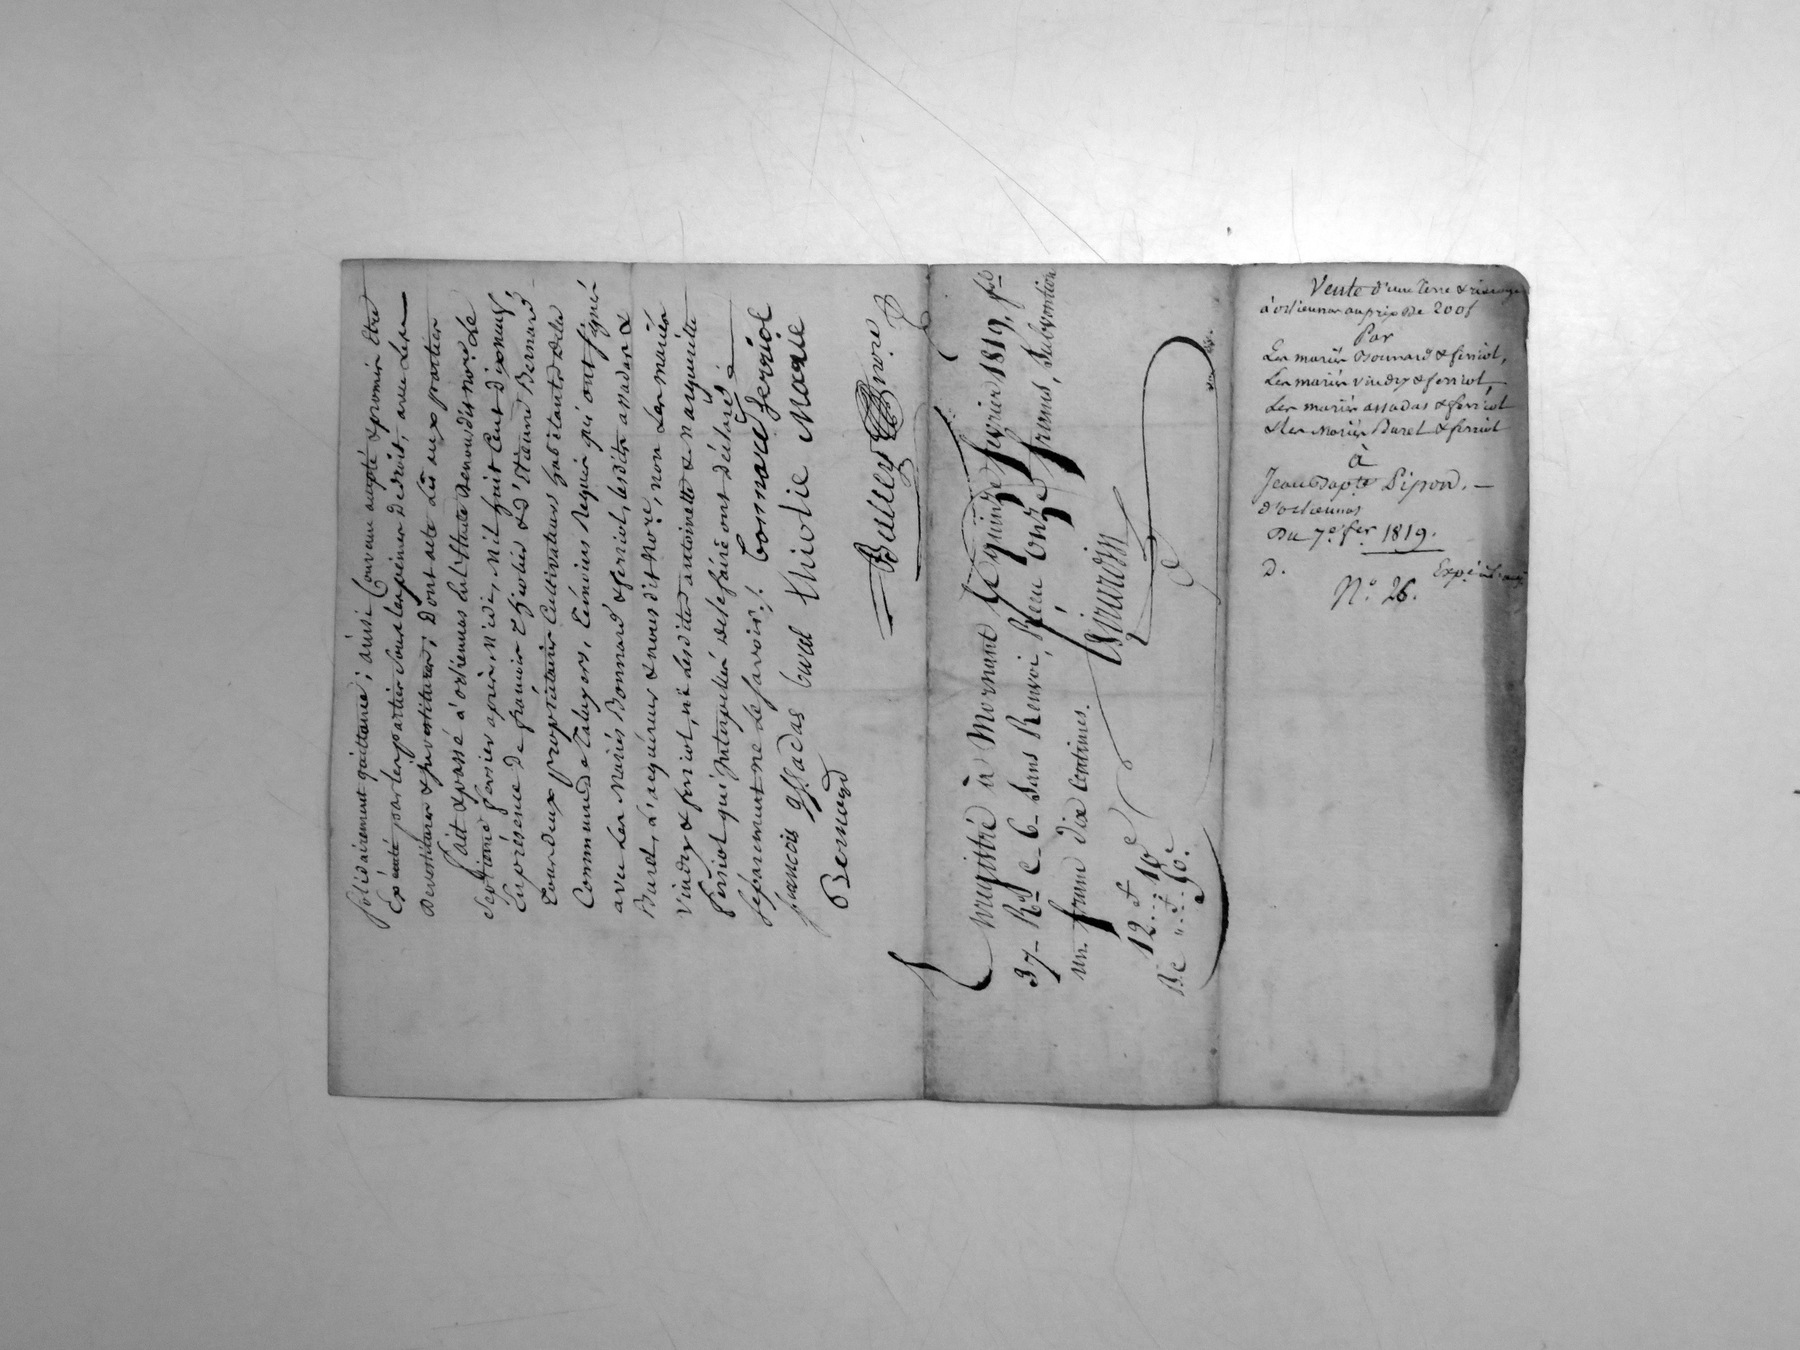 solidairement quittance; ainsi Convenu accepté & promis Etre
Exécuté par les parties sous les peines de droit, avec les
devestitures & Investitures; Dont acte lû aux parties
fait & passé à orliennas En l'Etude de nous dit no.re Le
septieme fevrier après midi, mil huit Cent dixneuf,
En présence de françois thiolie & d'Etienne Bernard
tous deux propriétaires Cultivateurs habitants de la
Commune de Taluyers, témoins requis qui ont signés
avec les mariés Bonnard & ferriol, lesdits assadas &
Burel, l'acquéreur & nous dit No.re, non les mariés
Vindry & ferriol, ni lesdites antoinette & marguerite
ferriol qui Interpellés de le faire ont déclaré
séparement ne le savoir ./.
bonnard ferriol
francois assadas burel thiolie Marie
Bernard
Bulley no.re
Enregistré à Mornant le quinze fevrier 1819, f.o
37 R.o C. 6. sans Renvoi, Reçu onze francs, subvention
un franc dix centimes.
Girardin
12 f 10 c
Vente d'une Terre &
à orliennas au prix de 200 f
Par
Les mariés Bonnard & ferriol,
Les mariés vindry & ferriol,
Les mariés assadas & ferriol
& les Mariés Burel & ferriol
à
Jean Bapt.e Pipon. —
d'orliennas
Du 7.e fer 1819.
D. Expé
N.o 26.